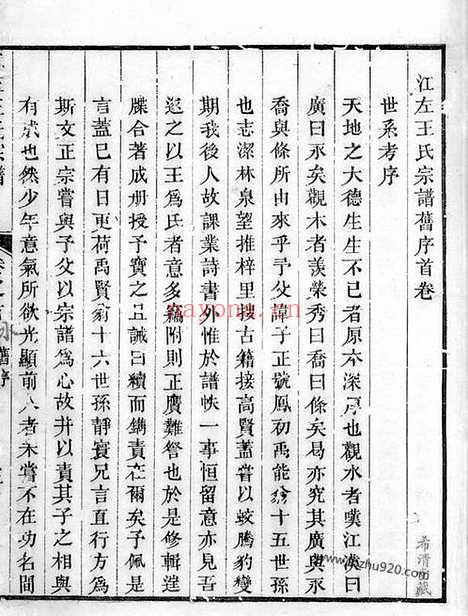 江左王氏宗譜舊序首卷
世系考序
天地之大德生生不已者原本深厚也觀水者嘆江漢曰
廣曰永矣觀木者羡榮秀曰喬曰條矣曷亦究其廣與永
喬與條所由來乎予父韋子正號鳳初禹能翁十五世孫
也志潔林泉望推梓里我古籍接高賢蓋嘗以蛟騰豹變
期我後人故課業詩書外惟於譜帙一事恒留意亦見吾
邑之以王爲氏者意多錯附則正贋難詧也於是修輯逹
牒合著成册授予寶之且誡曰續而鐫責在爾矣予佩是
言蓋已有日更荷禹賢翁十六世孫靜寰兄言直行方於
斯文正宗嘗與予父以宗譜爲心故并以責其子之相與
有成也然少年意氣所欲光顯前人者未嘗不在功名間
舊序
希清齋藏
nayong.cn
www.kzhu920.com